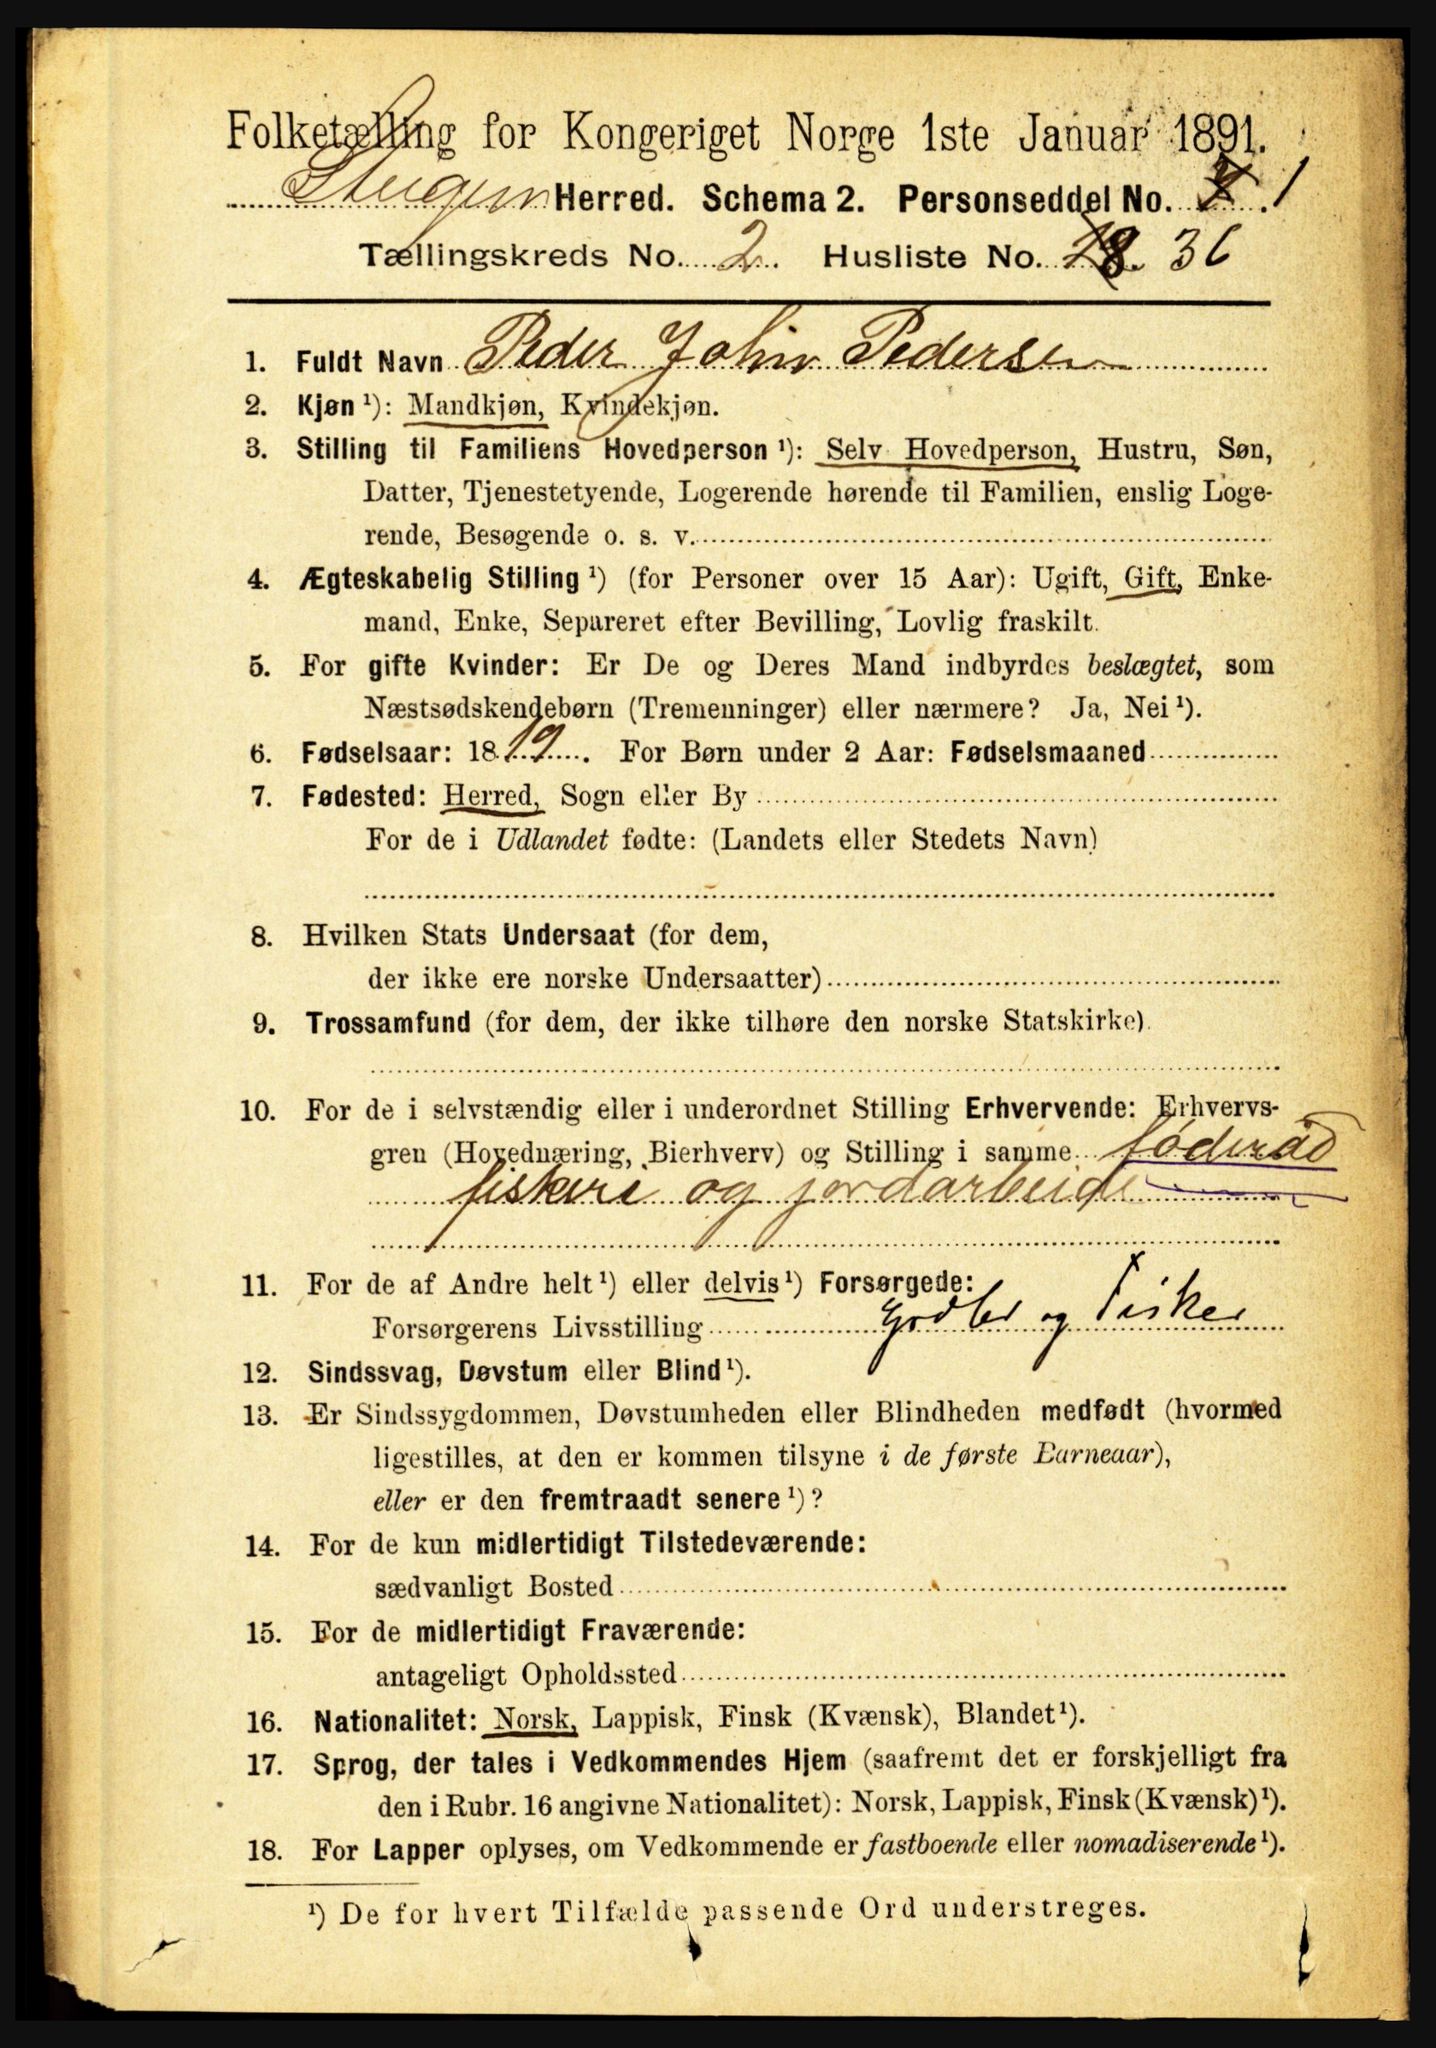 Folketælling for Kongeriget Norge 1ste Januar 1891.
Steigen Herred. Schema 2. Personseddel No. 1
Tællingskreds No. 2. Husliste No. 28. 36
1. Fuldt Navn Peder Johan Pedersen
2. Kjøn ¹): Mandkjøn, Kvindekjøn.
3. Stilling til Familiens Hovedperson ¹): Selv Hovedperson, Hustru, Søn,
Datter, Tjenestetyende, Logerende hørende til Familien, enslig Loge-
rende, Besøgende o. s. v.
4. Ægteskabelig Stilling ¹) (for Personer over 15 Aar): Ugift, Gift, Enke-
mand, Enke, Separeret efter Bevilling, Lovlig fraskilt.
5. For gifte Kvinder: Er De og Deres Mand indbyrdes beslægtet, som
Næstsødskendebørn (Tremenninger) eller nærmere? Ja, Nei ¹).
6. Fødselsaar: 1819. For Børn under 2 Aar: Fødselsmaaned
7. Fødested: Herred, Sogn eller By
For de i Udlandet fødte: (Landets eller Stedets Navn)
8. Hvilken Stats Undersaat (for dem,
der ikke ere norske Undersaatter)
9. Trossamfund (for dem, der ikke tilhøre den norske Statskirke).
10. For de i selvstændig eller i underordnet Stilling Erhvervende: Erhvervs-
gren (Hovednæring, Bierhverv) og Stilling i samme føderåd
fiskeri og jordarbeide
11. For de af Andre helt ¹) eller delvis ¹) Forsørgede:
Forsørgerens Livsstilling Grdbr og Fisker
12. Sindssvag, Døvstum eller Blind ¹).
13. Er Sindssygdommen, Døvstumheden eller Blindheden medfødt (hvormed
ligestilles, at den er kommen tilsyne i de første Barneaar),
eller er den fremtraadt senere ¹)?
14. For de kun midlertidigt Tilstedeværende:
sædvanligt Bosted
15. For de midlertidigt Fraværende:
antageligt Opholdssted
16. Nationalitet: Norsk, Lappisk, Finsk (Kvænsk), Blandet ¹).
17. Sprog, der tales i Vedkommendes Hjem (saafremt det er forskjelligt fra
den i Rubr. 16 angivne Nationalitet): Norsk, Lappisk, Finsk (Kvænsk) ¹).
18. For Lapper oplyses, om Vedkommende er fastboende eller nomadiserende ¹).
¹) De for hvert Tilfælde passende Ord understreges.